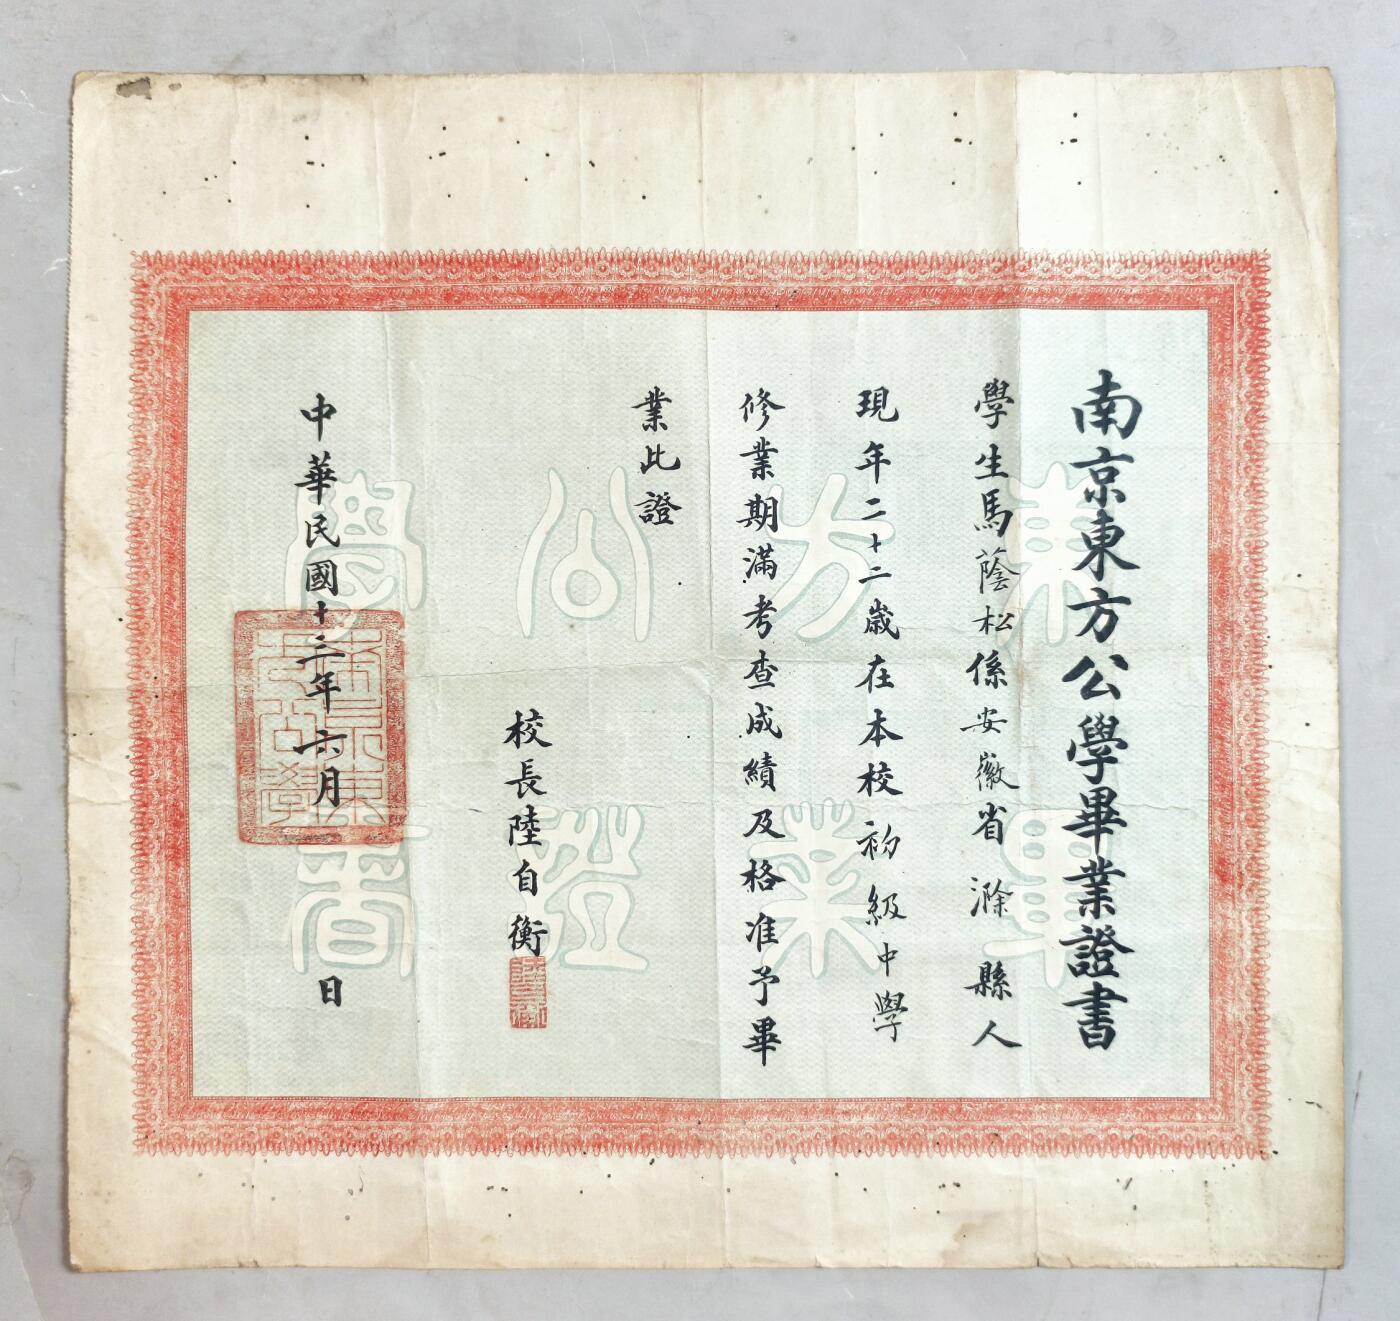 南京東方公學畢業證書
學生馬蔭松係安徽省滁縣人
現年二十二歲在本校初級中學
修業期滿考查成績及格准予畢
業此證
校長陸自衡
中華民國十三年六月 日
東方公學
畢業證書
南京東方公學